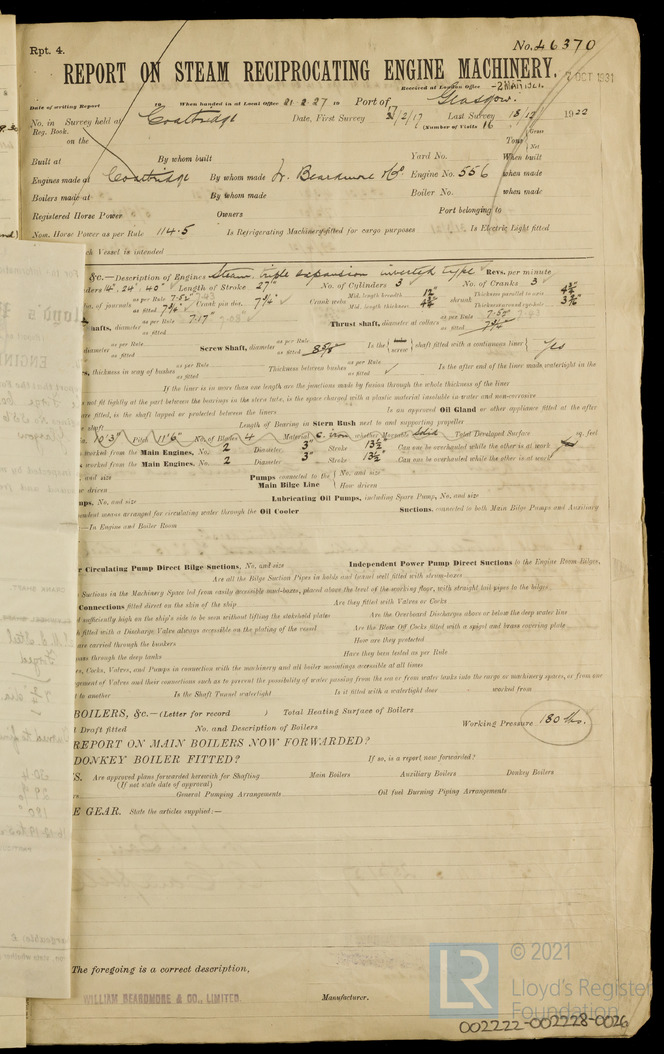 Rpt. 4. No. 46370
REPORT ON STEAM RECIPROCATING ENGINE MACHINERY.
7 OCT 1931
Received at London Office -2 MAR 1927
Date of writing Report 19 When handed in at Local Office 21·2·27 19 Port of Glasgow.
No. in Reg. Book. Survey held at Coatbridge Date, First Survey 2/2/17 Last Survey 1922
(Number of Visits 16
on the Tons Gross Net
Built at By whom built Yard No. When built
Engines made at Coatbridge By whom made W. Beardmore & Co Engine No. 556 when made
Boilers made at By whom made Boiler No. when made
Registered Horse Power Owners Port belonging to
Nom. Horse Power as per Rule 114.5 Is Refrigerating Machinery fitted for cargo purposes Is Electric Light fitted
ch Vessel is intended
&c.—Description of Engines Steam, triple expansion inverted type Revs. per minute
ders 14". 24". 40" Length of Stroke 27" No. of Cylinders 3 No. of Cranks 3
of journals as per Rule 7.52" 7.43 as fitted 7¾" Crank pin dia. 7¾" Crank webs Mid. length breadth 12" Mid. length thickness 4¾" shrunk Thickness parallel to axis 4¾" Thickness around eyehole 3⅜"
hafts, diameter as per Rule 7.17" 7.08 as fitted Thrust shaft, diameter at collars as per Rule 7.52" 7.43 as fitted 7¾"
diameter as per Rule as fitted Screw Shaft, diameter as per Rule as fitted 8⅝" Is the {tube screw} shaft fitted with a continuous liner { Yes
s, thickness in way of bushes as per Rule as fitted Thickness between bushes as per Rule as fitted Is the after end of the liner made watertight in the
If the liner is in more than one length are the junctions made by fusion through the whole thickness of the liner
not fit tightly at the part between the bearings in the stern tube, is the space charged with a plastic material insoluble in water and non-corrosive
are fitted, is the shaft lapped or protected between the liners Is an approved Oil Gland or other appliance fitted at the after
shaft Length of Bearing in Stern Bush next to and supporting propeller
10'3" Pitch 11'6" No. of Blades 4 Material C. iron whether Moveable Solid Total Developed Surface sq. feet
worked from the Main Engines, No. 2 Diameter 3" Stroke 13½" Can one be overhauled while the other is at work Yes
worked from the Main Engines, No. 2 Diameter 3" Stroke 13½" Can one be overhauled while the other is at work
and size Pumps connected to the Main Bilge Line { No. and size
driven How driven
mps, No. and size Lubricating Oil Pumps, including Spare Pump, No. and size
ndent means arranged for circulating water through the Oil Cooler Suctions, connected to both Main Bilge Pumps and Auxiliary
—In Engine and Boiler Room
r Circulating Pump Direct Bilge Suctions, No. and size Independent Power Pump Direct Suctions to the Engine Room Bilges,
Are all the Bilge Suction Pipes in holds and tunnel well fitted with strum-boxes
Suctions in the Machinery Space led from easily accessible mud-boxes, placed above the level of the working floor, with straight tail pipes to the bilges
Connections fitted direct on the skin of the ship Are they fitted with Valves or Cocks
sufficiently high on the ship's side to be seen without lifting the stokehold plates Are the Overboard Discharges above or below the deep water line
h fitted with a Discharge Valve always accessible on the plating of the vessel Are the Blow Off Cocks fitted with a spigot and brass covering plate
are carried through the bunkers How are they protected
pass through the deep tanks Have they been tested as per Rule
es, Cocks, Valves, and Pumps in connection with the machinery and all boiler mountings accessible at all times
gement of Valves and their connections such as to prevent the possibility of water passing from the sea or from water tanks into the cargo or machinery spaces, or from one
t to another Is the Shaft Tunnel watertight Is it fitted with a watertight door worked from
BOILERS, &c.—(Letter for record ) Total Heating Surface of Boilers
Draft fitted No. and Description of Boilers Working Pressure 180 lbs.
REPORT ON MAIN BOILERS NOW FORWARDED?
DONKEY BOILER FITTED? If so, is a report now forwarded?
S. Are approved plans forwarded herewith for Shafting Main Boilers Auxiliary Boilers Donkey Boilers
(If not state date of approval)
General Pumping Arrangements Oil fuel Burning Piping Arrangements
E GEAR. State the articles supplied:—
The foregoing is a correct description,
WILLIAM BEARDMORE & CO., LIMITED. Manufacturer.
LR © 2021
Lloyd's Register
Foundation
002222-002228-0026